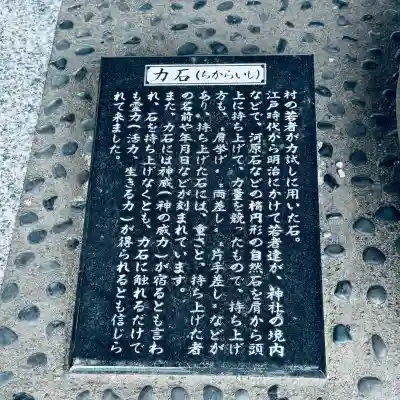 力石(ちからいし)
村の若者が力試しに用いた石。
江戸時代から明治にかけて若者達が、神社の境内
などで、河原石などの楕円形の自然石を肩から頭
上に持ち上げて、力量を競ったもので、持ち上げ
方も、「肩挙げ」「両差し」「片手差し」などが
あり、持ち上げた石には、重さと、持ち上げた者
の名前や年月日などが刻まれています。
また、力石には神威(神の威力)が宿るとも言わ
れ、石を持ち上げなくとも、力石に触れるだけで
も霊力(活力、生きる力)が得られるとも信じら
れて来ました。